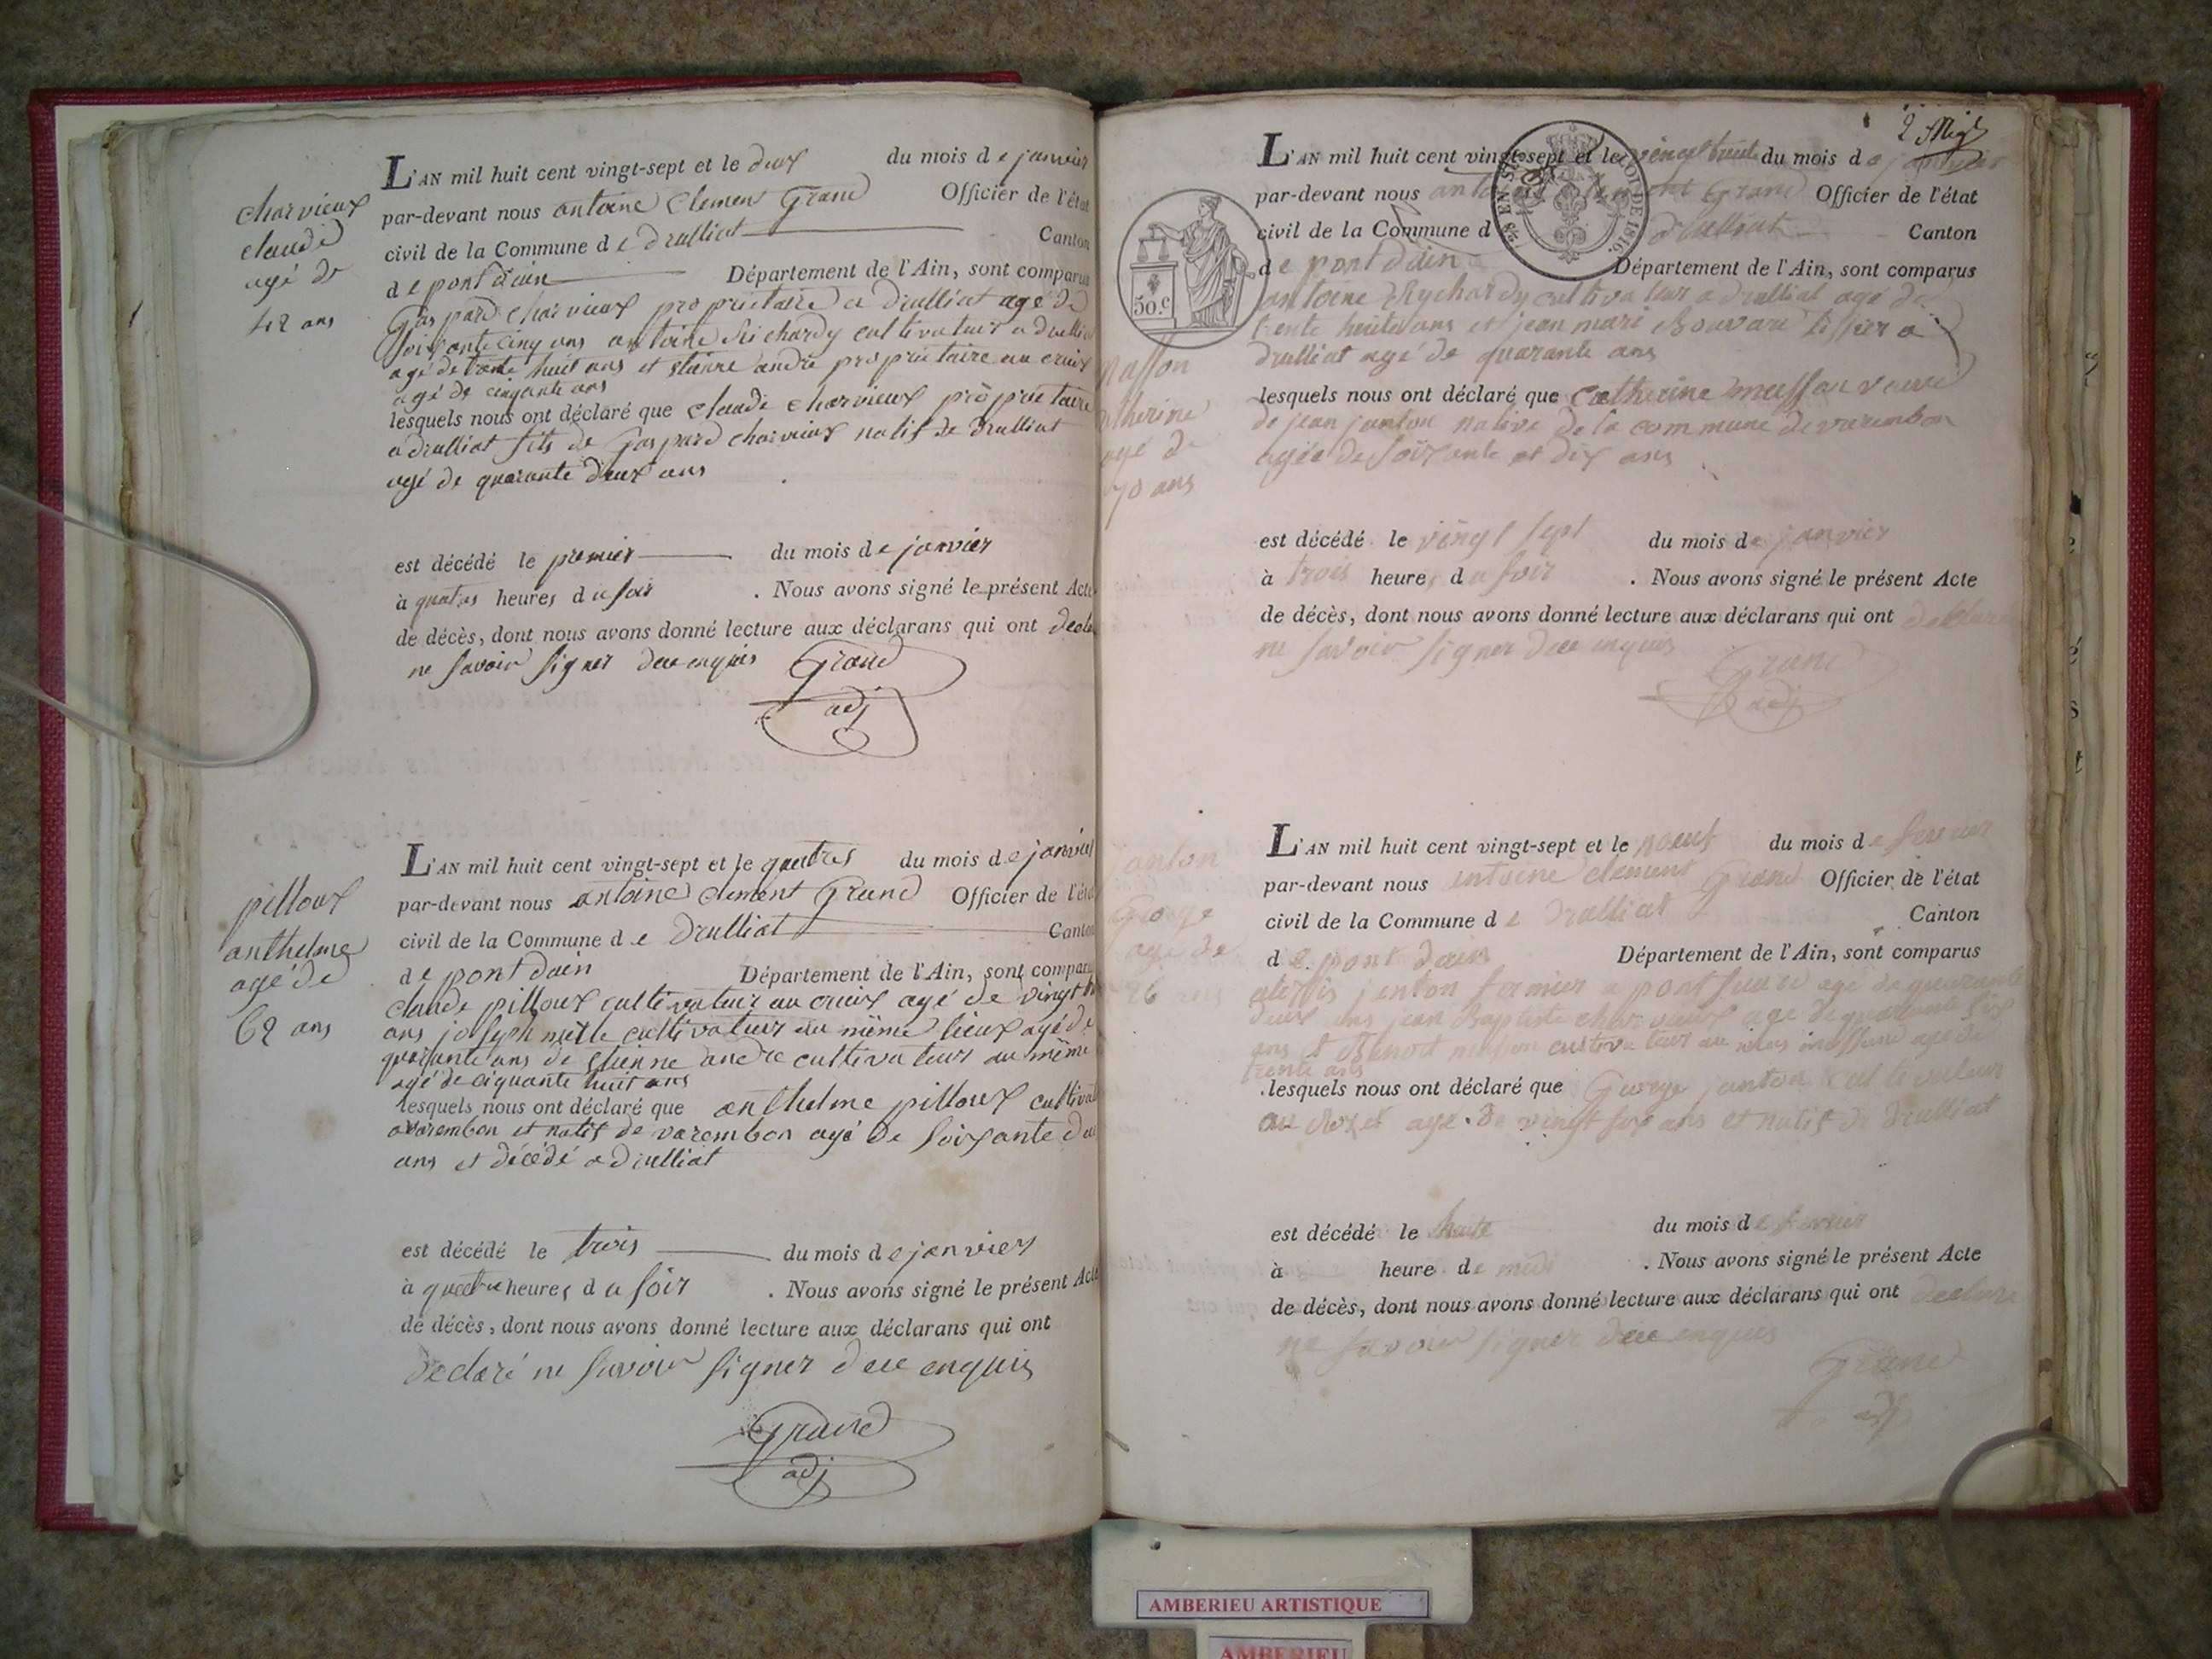 charvieux
claude
agé de
42 ans
L'AN mil huit cent vingt-sept et le deux du mois de janvier
par-devant nous antoine Clement Grand Officier de l'état
civil de la Commune de druilliat Canton
de pont dain Département de l'Ain, sont comparus
Gaspard charvieux proprietaire a druilliat agé de
soixante cinq ans antoine Richardy cultivateur a druillia
agé de trente huit ans et etienne andré proprietaire au creux
agé de cinquante ans
lesquels nous ont déclaré que claude charvieux proprietaire
a druilliat fils de Gaspard charvieux natif de druilliat
agé de quarante deux ans
est décédé le premier du mois de janvier
à quatres heures du soir . Nous avons signé le présent Acte
de décès, dont nous avons donné lecture aux déclarans qui ont
ne savoir signer de ce enquis Grand
adj
pilloux
anthelme
agé de
62 ans
L'AN mil huit cent vingt-sept et le quatres du mois de janvier
par-devant nous antoine clement Grand Officier de l'état
civil de la Commune de Druilliat Canton
de pont dain Département de l'Ain, sont compar
claude pilloux cultivateur au creux agé de vingt
ans joseph cultivateur au même lieux agé de
quarante ans de etienne andré cultivateur au même
agé de ciquante huit ans
lesquels nous ont déclaré que anthelme pilloux cultiva
a varembon et natif de varembon agé de soixante deu
ans et décédé a druilliat
est décédé le trois du mois de janvier
à quatre heures du soir . Nous avons signé le présent Acte
de décès, dont nous avons donné lecture aux déclarans qui ont
declaré ne savoir signer de ce enquis
Grand
adj
L'AN mil huit cent vingt-sept et le vingt huit du mois de janvier
par-devant nous Grand Officier de l'état
civil de la Commune d druilliat Canton
de pont dain Département de l'Ain, sont comparus
50.c
antoine Rychardy cultivateur a druilliat agé de
trente huit ans et jean mari Bouvard tissier a
druilliat agé de quarante ans
Masson
therine
agé de
70 ans
lesquels nous ont déclaré que Catherine masson veuve
de jean janton native de la commune de varembon
agée de soixante et dix ans
est décédé le vingt sept du mois de janvier
à trois heure du soir . Nous avons signé le présent Acte
de décès, dont nous avons donné lecture aux déclarans qui ont declaré
ne savoir signer de ce enquis
Grand
adj
janton
George
agé de
26 ans
L'AN mil huit cent vingt-sept et le noeuf du mois de fevrier
par-devant nous antoine clement Grand Officier de l'état
civil de la Commune de Druilliat Canton
de pont dain Département de l'Ain, sont comparus
janton fermier a pont agé de quarante
deux ans jean Baptiste charvieux agé de quarante six
ans et Benoit cultivateur au agé de
trente ans
lesquels nous ont déclaré que George janton cultivateur
au agé de vingt six ans et natif de druilliat
est décédé le huite du mois de fevrier
à heure de midi . Nous avons signé le présent Acte
de décès, dont nous avons donné lecture aux déclarans qui ont declaré
ne savoir signer de ce enquis
Grand
adj
AMBERIEU ARTISTIQUE
AMBERIEU